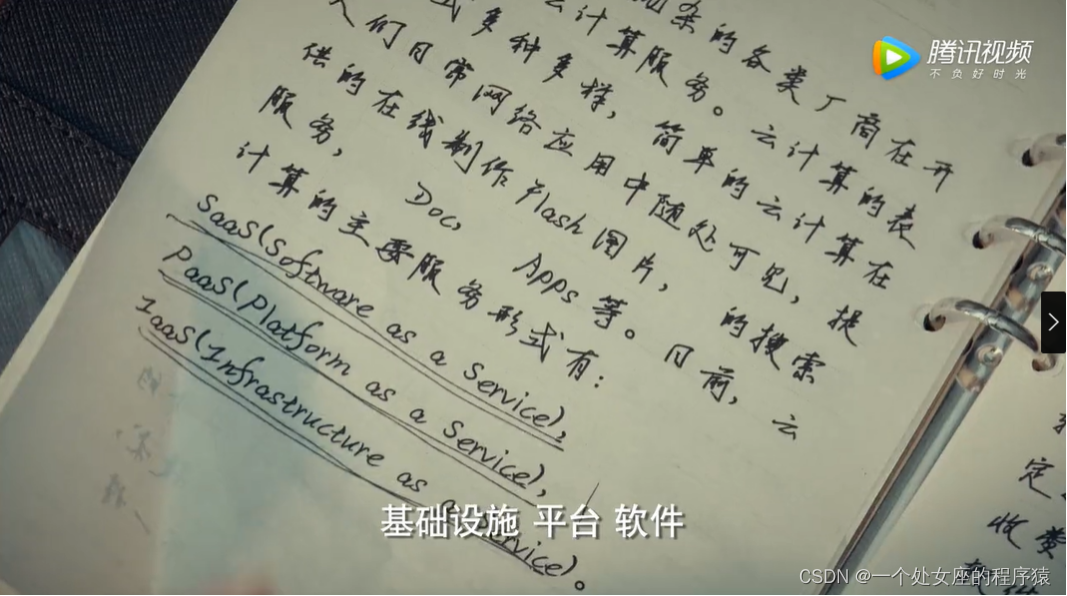 杂的各类厂商在开
云计算服务。云计算的表
式多种多样，简单的云计算在
人们日常网络应用中随处可见，提
供的在线制作Flash图片， 的搜索
服务， Doc, Apps等。目前，云
计算的主要服务形式有：
SaaS(Software as a Service),
PaaS(Platform as a Service),
IaaS(Infrastructure as a Service)。
定
收费
腾讯视频
不负好时光
基础设施 平台 软件
CSDN @一个处女座的程序猿